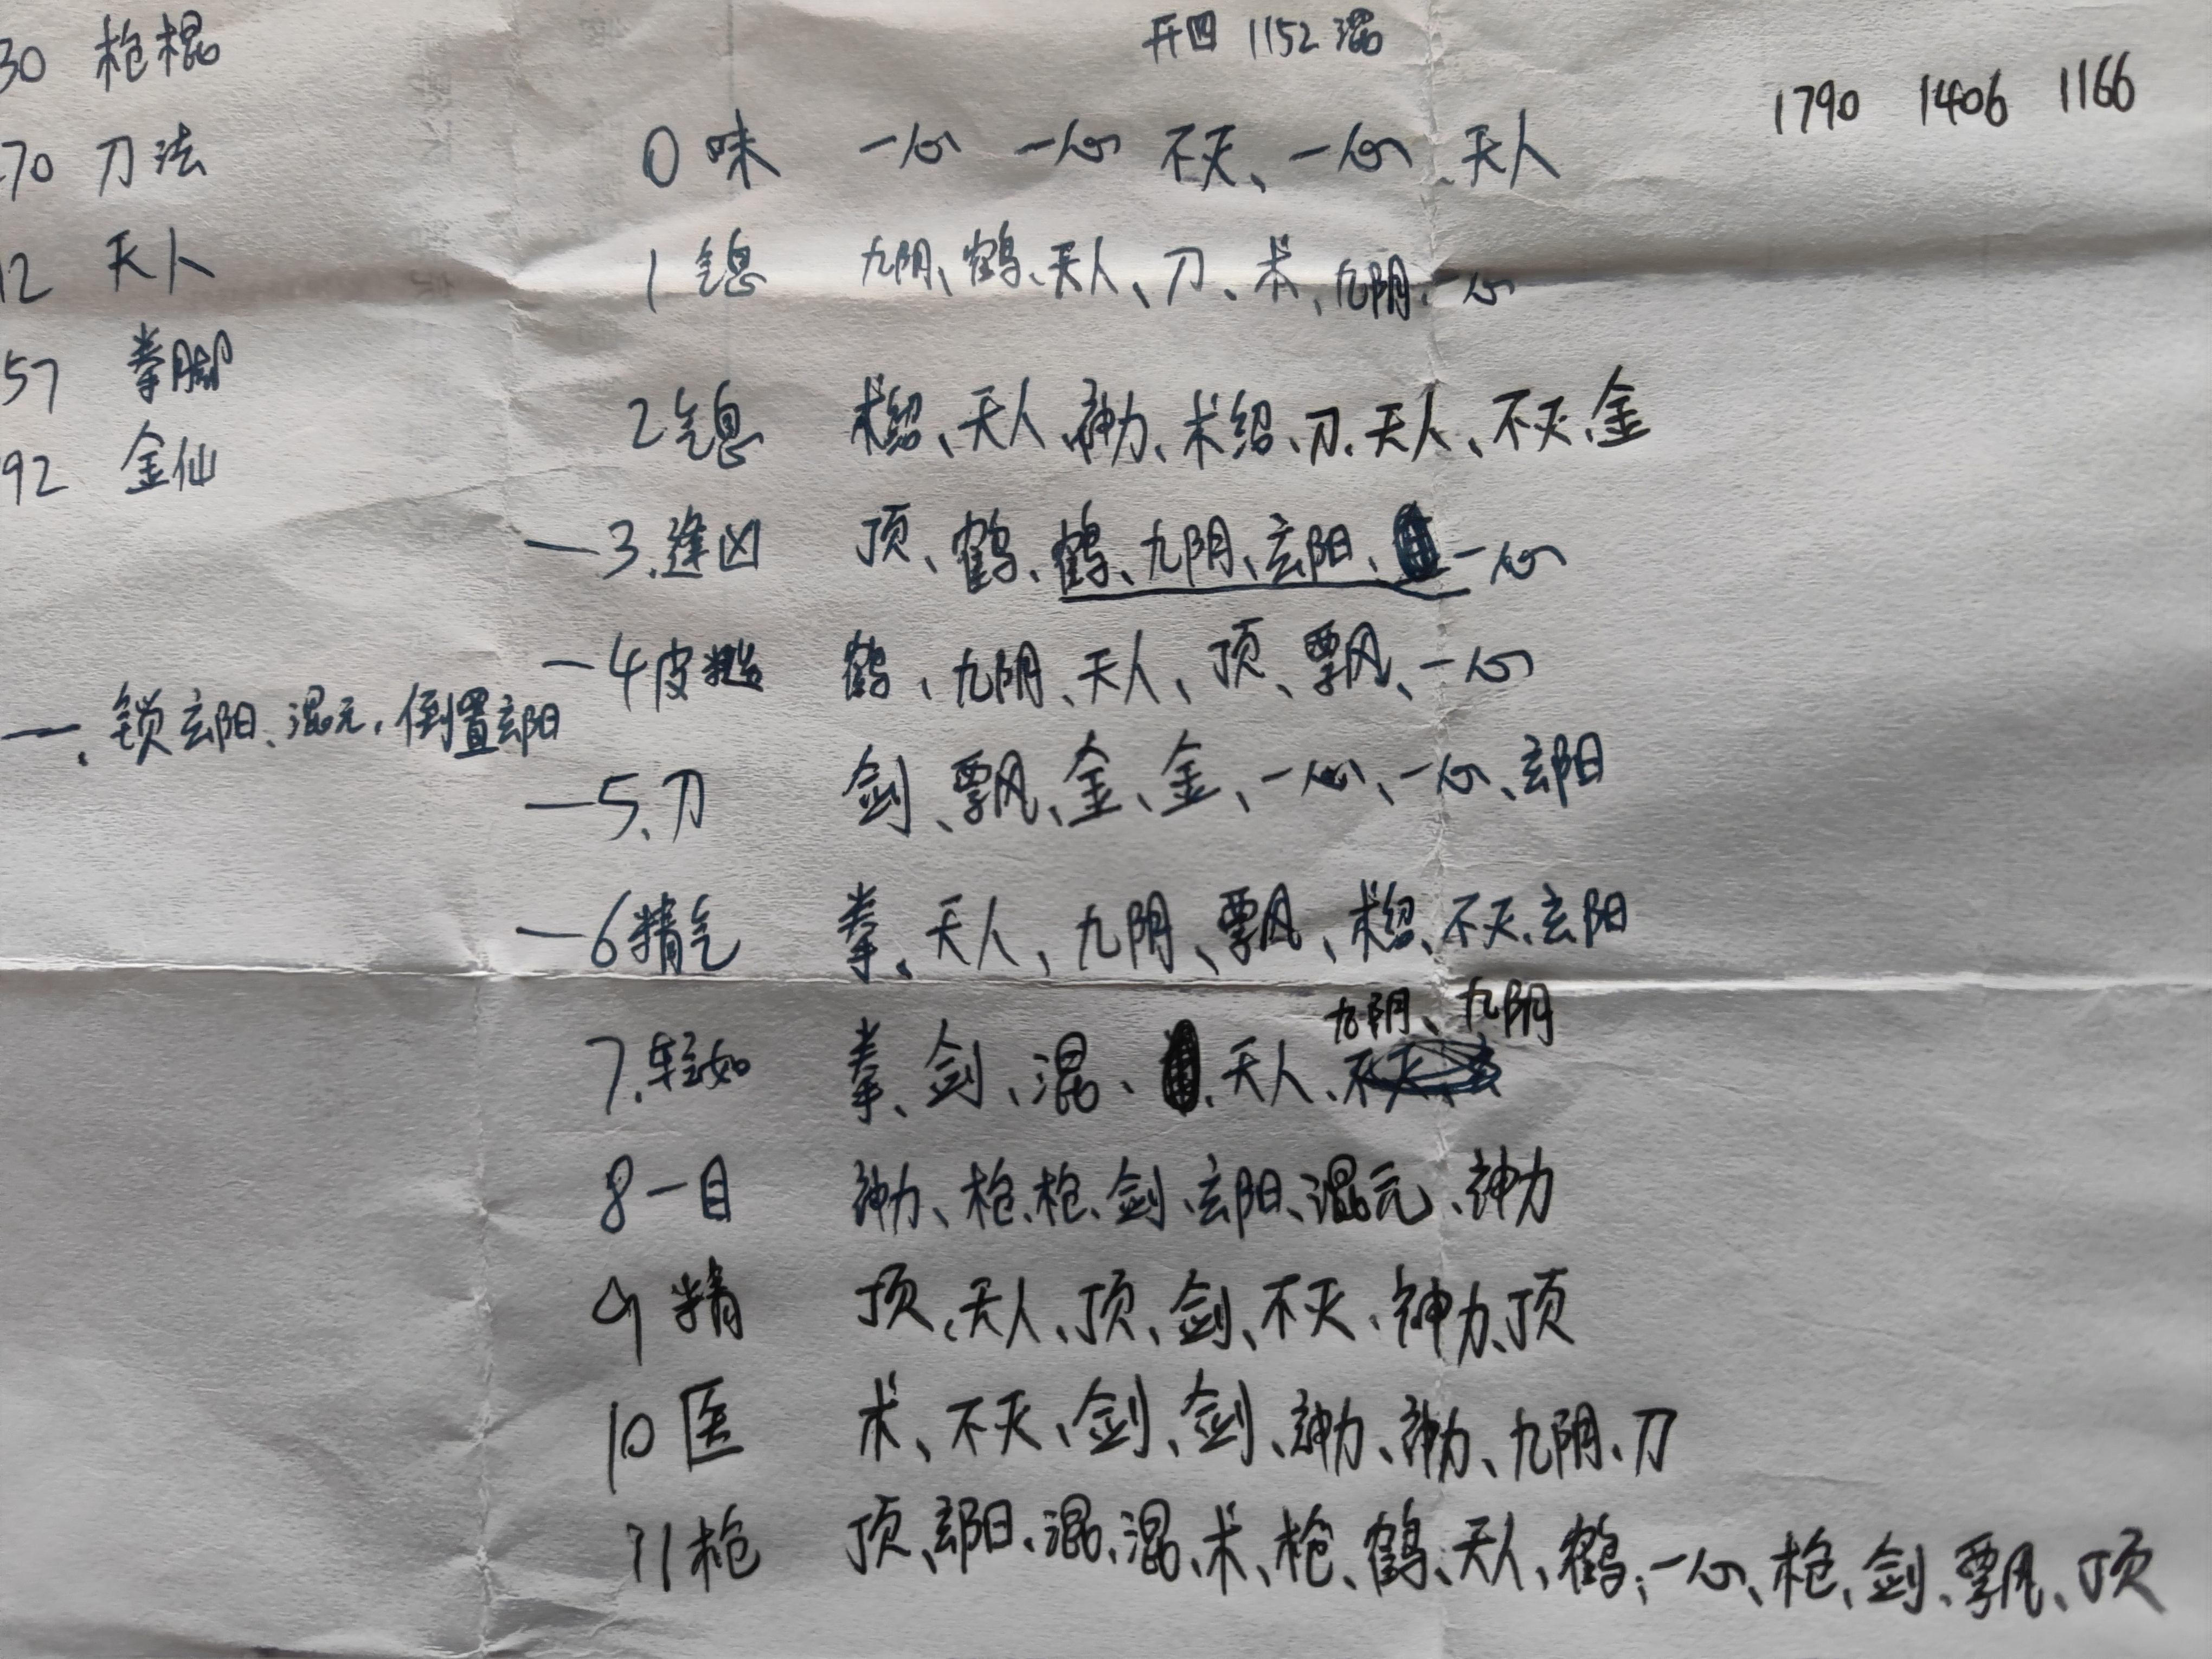 30 枪棍
70 刀法
12 天人
57 拳脚
92 金仙
一、锁玄阳、混元、倒置玄阳
开四 1152 混
1790 1406 1166
0 味 一心 一心 不灭、一心、天人
1 气息 九阴、鹤、天人、刀、术、九阴、一心
2 气息 术绍、天人、神力、术绍、刀、天人、不灭、金
—3、逢凶 顶、鹤、鹤、九阴、玄阳、一心
—4 皮糙 鹤、九阴、天人、顶、飘、一心
—5、刀 剑、飘、金、金、一心、一心、玄阳
—6 精气 拳、天人、九阴、飘、术绍、不灭、玄阳
九阴、九阴
7、轻如 拳、剑、混、天人、
8 一目 神力、枪、枪、剑、玄阳、混元、神力
9 精 顶、天人、顶、剑、不灭、神力、顶
10 医 术、不灭、剑、剑、神力、神力、九阴、刀
11 枪 顶、玄阳、混、混、术、枪、鹤、天人、鹤、一心、枪、剑、飘、顶